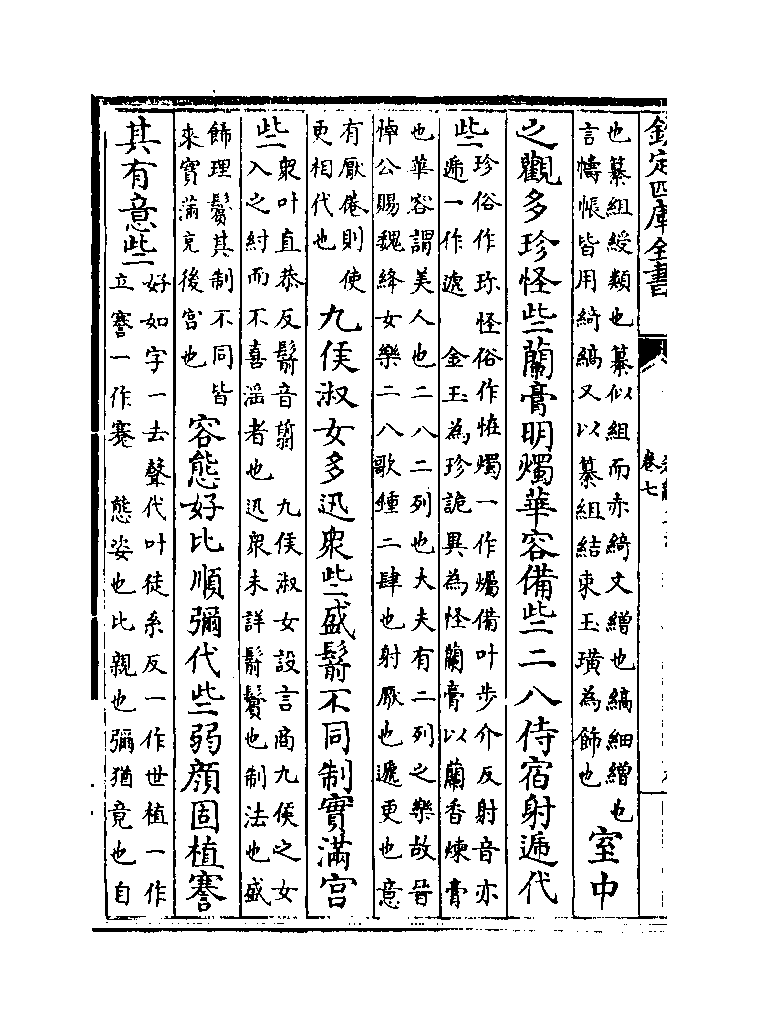 欽定四庫全書
卷七
也纂組綬類也纂似組而赤綺文繒也縞細繒也
言幬帳皆用綺縞又以纂組結束玉璜為飾也
室中
之觀多珍怪些蘭膏明燭華容備些二八侍宿射遞代
些
珍俗作珎怪俗作恠燭一作爥備叶步介反射音亦
遞一作遞 金玉為珍詭異為怪蘭膏以蘭香煉膏
也華容謂美人也二八二列也大夫有二列之樂故晉
悼公賜魏絳女樂二八歌鍾二肆也射厭也遞更也意
有厭倦則使
更相代也
九侯淑女多迅衆些盛鬋不同制實滿宮
些
衆叶直恭反鬋音翦 九侯淑女設言商九侯之女
入之紂而不喜滛者也迅衆未詳鬋鬢也制法也盛
飾理鬢其制不同皆
來實滿充後宮也
容態好比順彌代些弱顔固植謇
其有意些
好如字一去聲代叶徒系反一作世植一作
立謇一作蹇 態姿也比親也彌猶竟也自